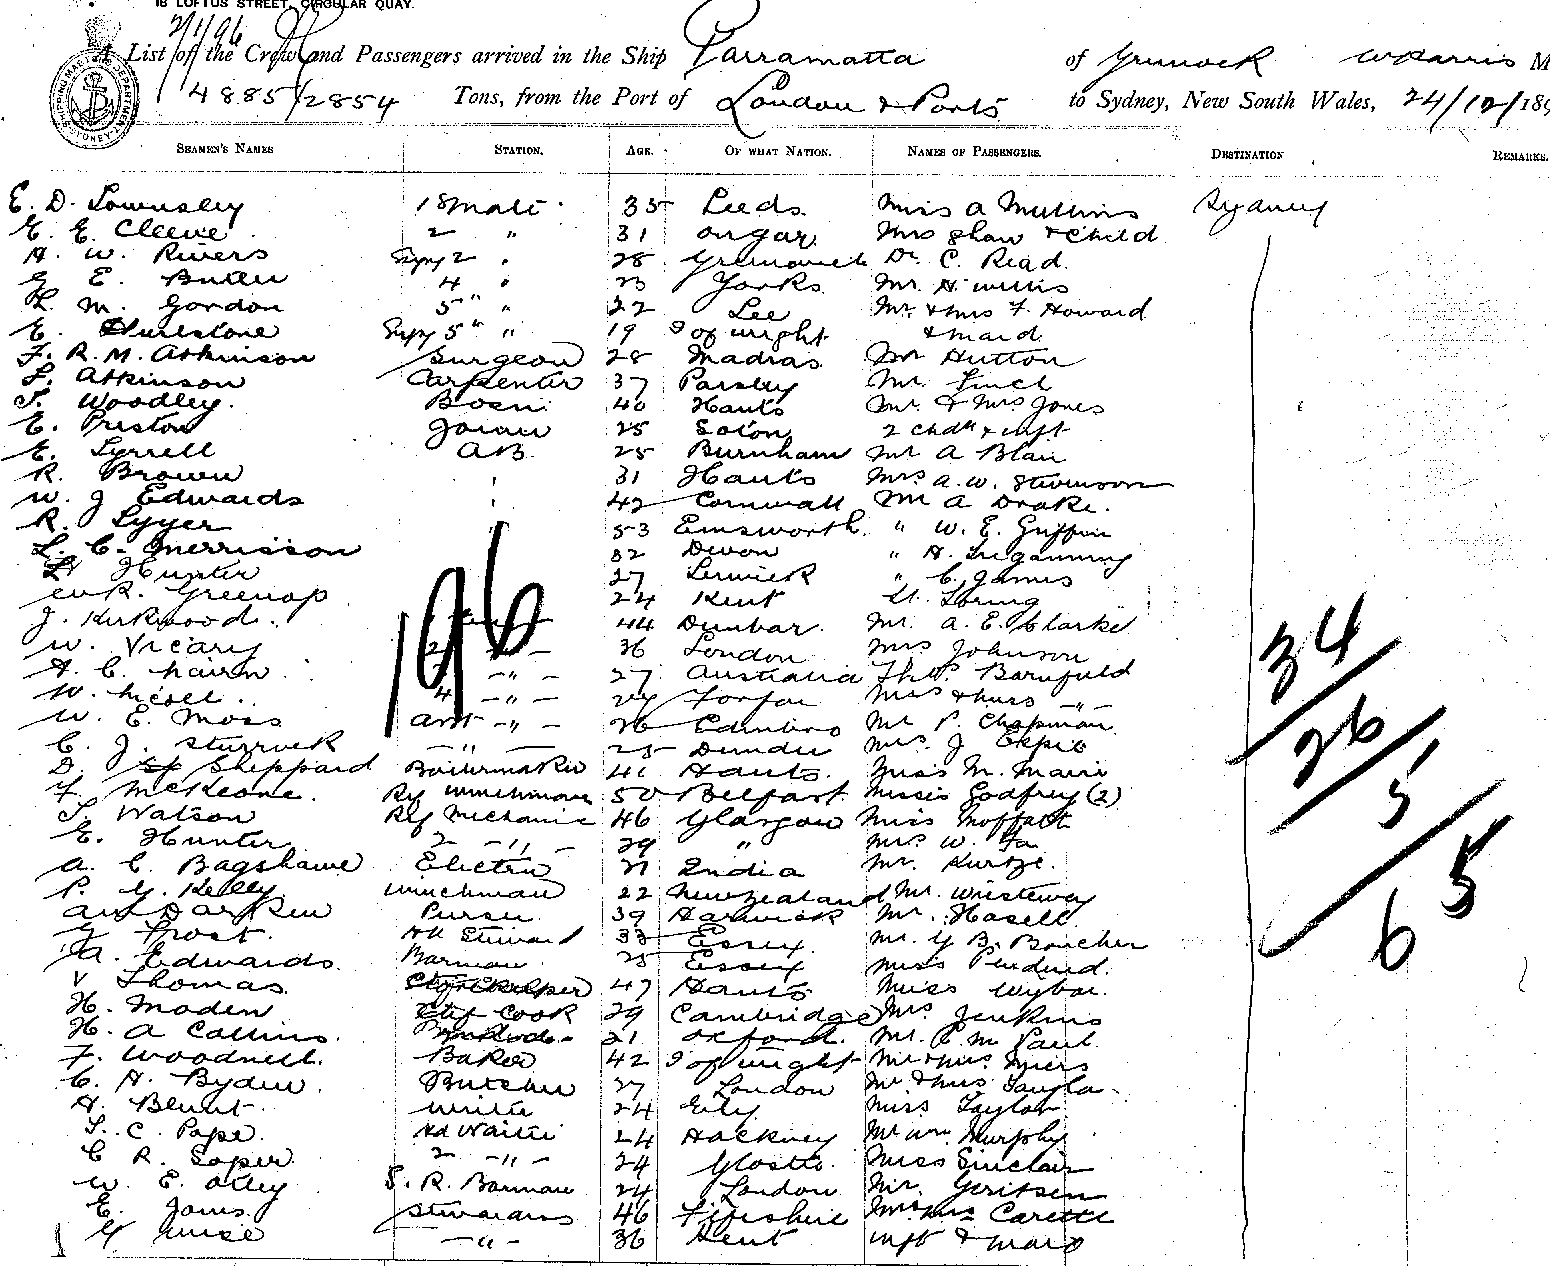 18 LOFTUS STREET, CIRCULAR QUAY.
2/1/96
A List of the Crew and Passengers arrived in the Ship Parramatta of Greenock W Barris M
4885/2854 Tons, from the Port of London & Ports to Sydney, New South Wales, 24/12/189
SEAMEN'S NAMES STATION. AGE. OF WHAT NATION. NAMES OF PASSENGERS. DESTINATION REMARKS.
E. D. Lownsley 1st Mate 35 Leeds Miss A Mullins Sydney
E. E. Cleeve 2 " 31 Ongar Mrs Shaw & Child
H. W. Rivers Supy 2 " 28 Greenwich Dr. C. Read
G E. Butler 4 " 23 Yorks Mr. H. Willis
R. M. Gordon 5" " 22 Lee Mr. & Mrs F. Howard
E. Hurlstone Supy 5" " 19 I of Wright & Maid
F. R. M. Atkinson Surgeon 28 Madras Mr Hutton
L. Atkinson Carpenter 37 Paisley Mr. Finch
T. Woodley. Bosn 40 Hants Mr. & Mrs Jones
E. Preston Joiner 25 Soton 2 Chdn & inft
E. Tyrrell AB 25 Burnham Mr A Blair
R. Brown " 31 Hants Mrs A. W. Stevenson
W. J Edwards " 42 Cornwall Mr A Drake.
R. Lyyer 53 Emsworth. " W. E. Griffin
L. C. Merrisson 32 Devon " H. Treganning
Hunter 27 Lerwick " C. James
Greenop 24 Kent Lt. Loring
J. Kirkwood. 44 Dunbar. Mr. A. E. Clarke
W. Vicary 2 - " - 36 London Mrs Johnson
A. C. Nairn - " - 27 Australia Thos. Barnfield
W. Nicoll.. 4 - " - 24 Forfar
W. E. Moss Asst - " - 26 Edinbro Mr P. Chapman
C. J. Sturrock - " - 25 Dundee Mrs. J Espie
D. Sheppard Boilermaker 41 Hants. Miss M. Mair
F. McKeone. Winchman 50 Belfast. Misses Godfrey (2)
T. Watson Refg Mechanic 46 Glasgow Miss Moffatt
E. Hunter 2 - " - 29 " Mrs W.
A. C. Bagshawe Electrn 21 India Mr. Kurtze.
P. G. Kelly Winchman 22 New Zealand Mr. Wristeway
Darken Purser 39 Harwick Mr. Hasell
G Frost. Hd Steward 33 Essex Mr. G B. Boucher
A. Edwards. Barman 25 Essex Miss
V Thomas. Storekeeper 47 Hants Miss Wybar.
H. Maden Cook 29 Cambridge Mrs Jenkins
H. A Collins. 21 Oxford. Mr. E. M. Paul
F. Woodnell. Baker 42 I of Wright Mr & Mrs. Miers
C. H. Byden. Butcher 27 London Mr & Mrs
A. Bennt. Writer 24 Ely Miss Taylor
T. C. Pope. Hd Waiter 24 Hackney Mr Wm Murphy
C R. Soper 2 - " - 24 Glostr. Miss Sinclair
W. E. Otley S. R. Barman 24 London Mr. Geritsen
E. Jones Stewards 46 Fifeshire Carette
G Wise - " - 36 Kent inft & Maid
196
34
26
5
65